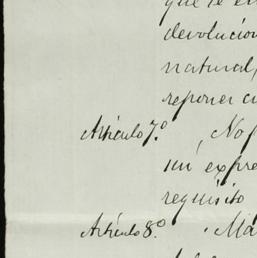 que se en
devolucion
natural,
reponer
Artículo 7.º No
sin expre
requisito
Artículo 8.º Ma